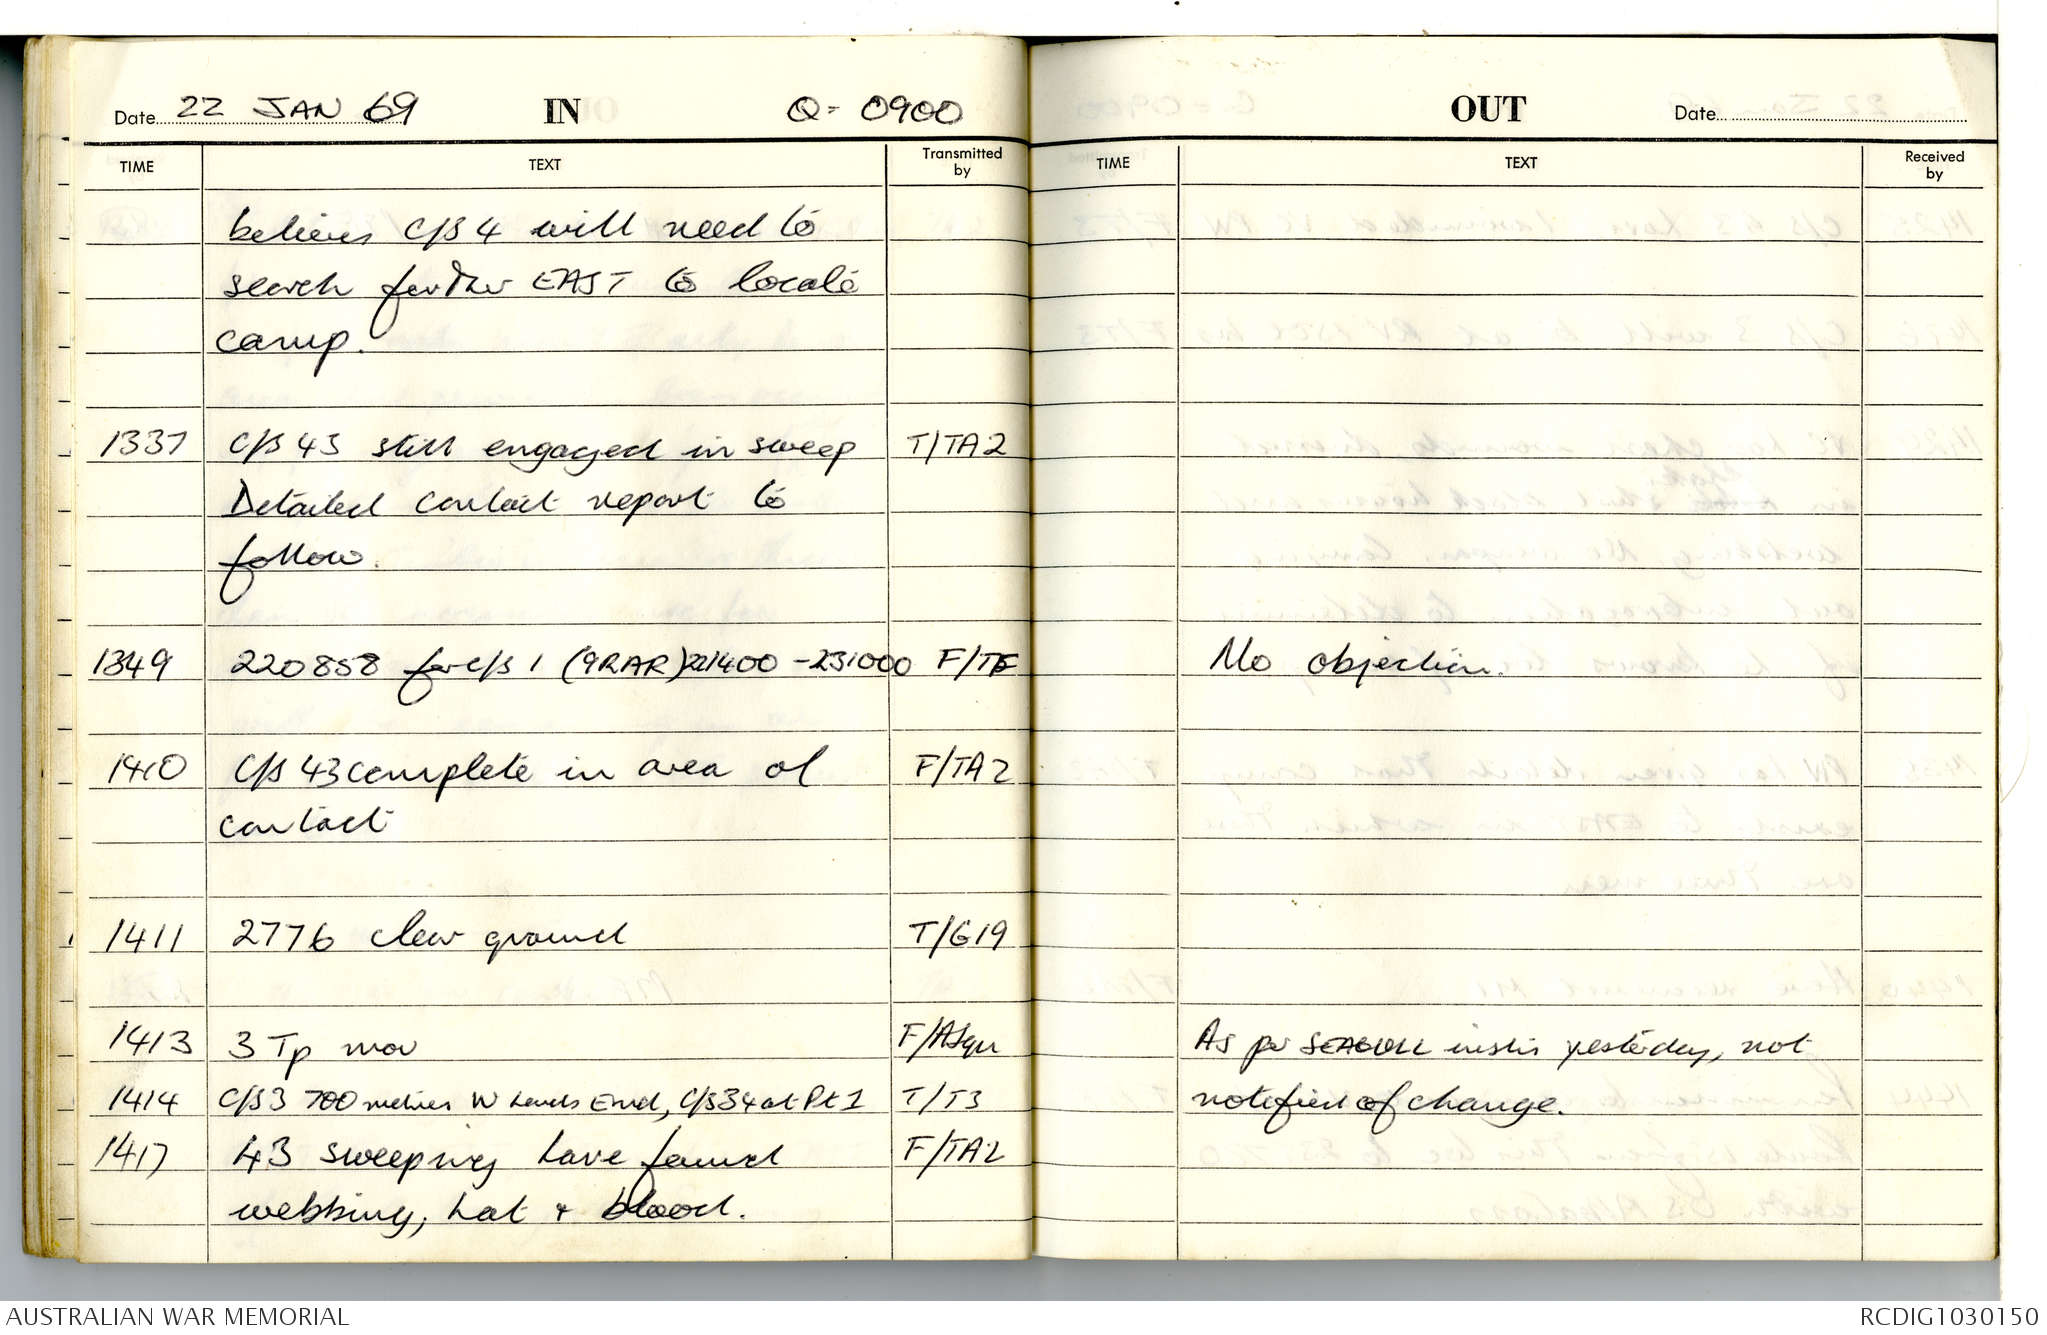 Date 22 JAN 69 IN Q = 0900
TIME TEXT Transmitted by
believes C/S 4 will need to
search further EAST to locate
camp.
1337 C/S 43 still engaged in sweep T/TA2
Detailed contact report to
follow.
1349 220858 for C/S 1 (9RAR) 221400 - 231000
1410 C/S 43 complete in area of F/TA2
contact
1411 2776 clear ground T/G19
1413 3 Tp mov F/ASqn
1414 C/S 3 700 metres W Lands End, C/S 34 at Pt 1 T/T3
1417 43 sweeping have found F/TA2
webbing, hat + blood.
OUT Date
TIME TEXT Received by
No objection.
As per SEAGULL instr yesterday, not
notified of change.
AUSTRALIAN WAR MEMORIAL RCDIG1030150